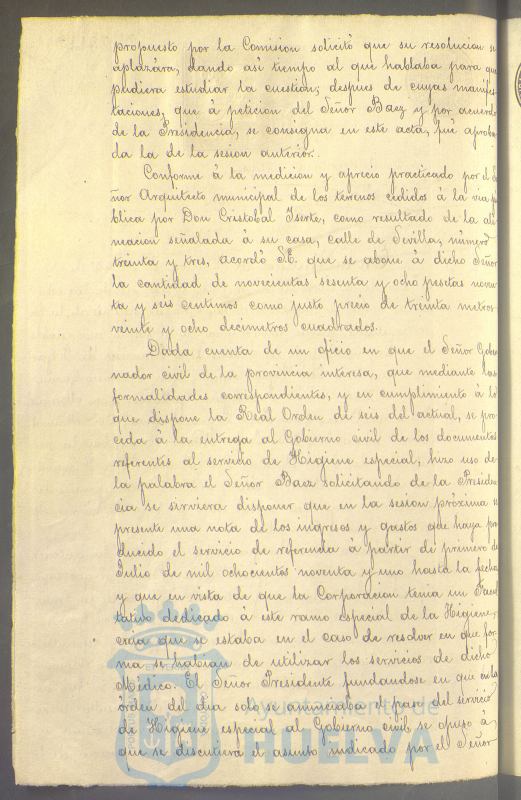 propuesto por la Comision solicitó que su resolucion se
aplazára, dando asi tiempo al que hablaba para que
pudiera estudiar la cuestion; despues de cuyas manifes-
taciones, que á peticion del Señor Baez y por acuerdo
de la Presidencia, se consigna en este acta, fué aproba-
da la de la sesion anterior.
Conforme á la medicion y aprecio practicado por el Se-
ñor Arquitecto municipal de los terrenos cedidos á la via pú-
blica por Don Cristobal Iserte, como resultado de la ali-
neacion señalada á su casa, calle de Sevilla, número
treinta y tres, acordó S.E. que se abone á dicho Señor
la cantidad de novecientas sesenta y ocho pesetas noven-
ta y seis centimos como justo precio de treinta metros
veinte y ocho decimetros cuadrados.
Dada cuenta de un oficio en que el Señor Gober-
nador civil de la provincia interesa, que mediante las
formalidades correspondientes, y en cumplimiento á lo
que dispone la Real Orden de seis del actual, se pro-
ceda á la entrega al Gobierno civil de los documentos
referentes al servicio de Higiene especial, hizo uso de
la palabra el Señor Baez solicitando de la Presiden-
cia se sirviera disponer que en la sesion próxima se
presente una nota de los ingresos y gastos que haya pro-
ducido el servicio de referencia á partir de primero de
Julio de mil ochocientos noventa y uno hasta la fecha
y que en vista de que la Corporacion tenia un Facul-
tativo dedicado á este ramo especial de la Higiene,
creia que se estaba en el caso de resolver en que for-
ma se habian de utilizar los servicios de dicho
Médico. El Señor Presidente fundandose en que en la
órden del dia solo se anunciaba el pase del servicio
de Higiene especial al Gobierno civil, se opuso á
que se discutiera el asunto indicado por el Señor
Ayuntamiento de
HUELVA